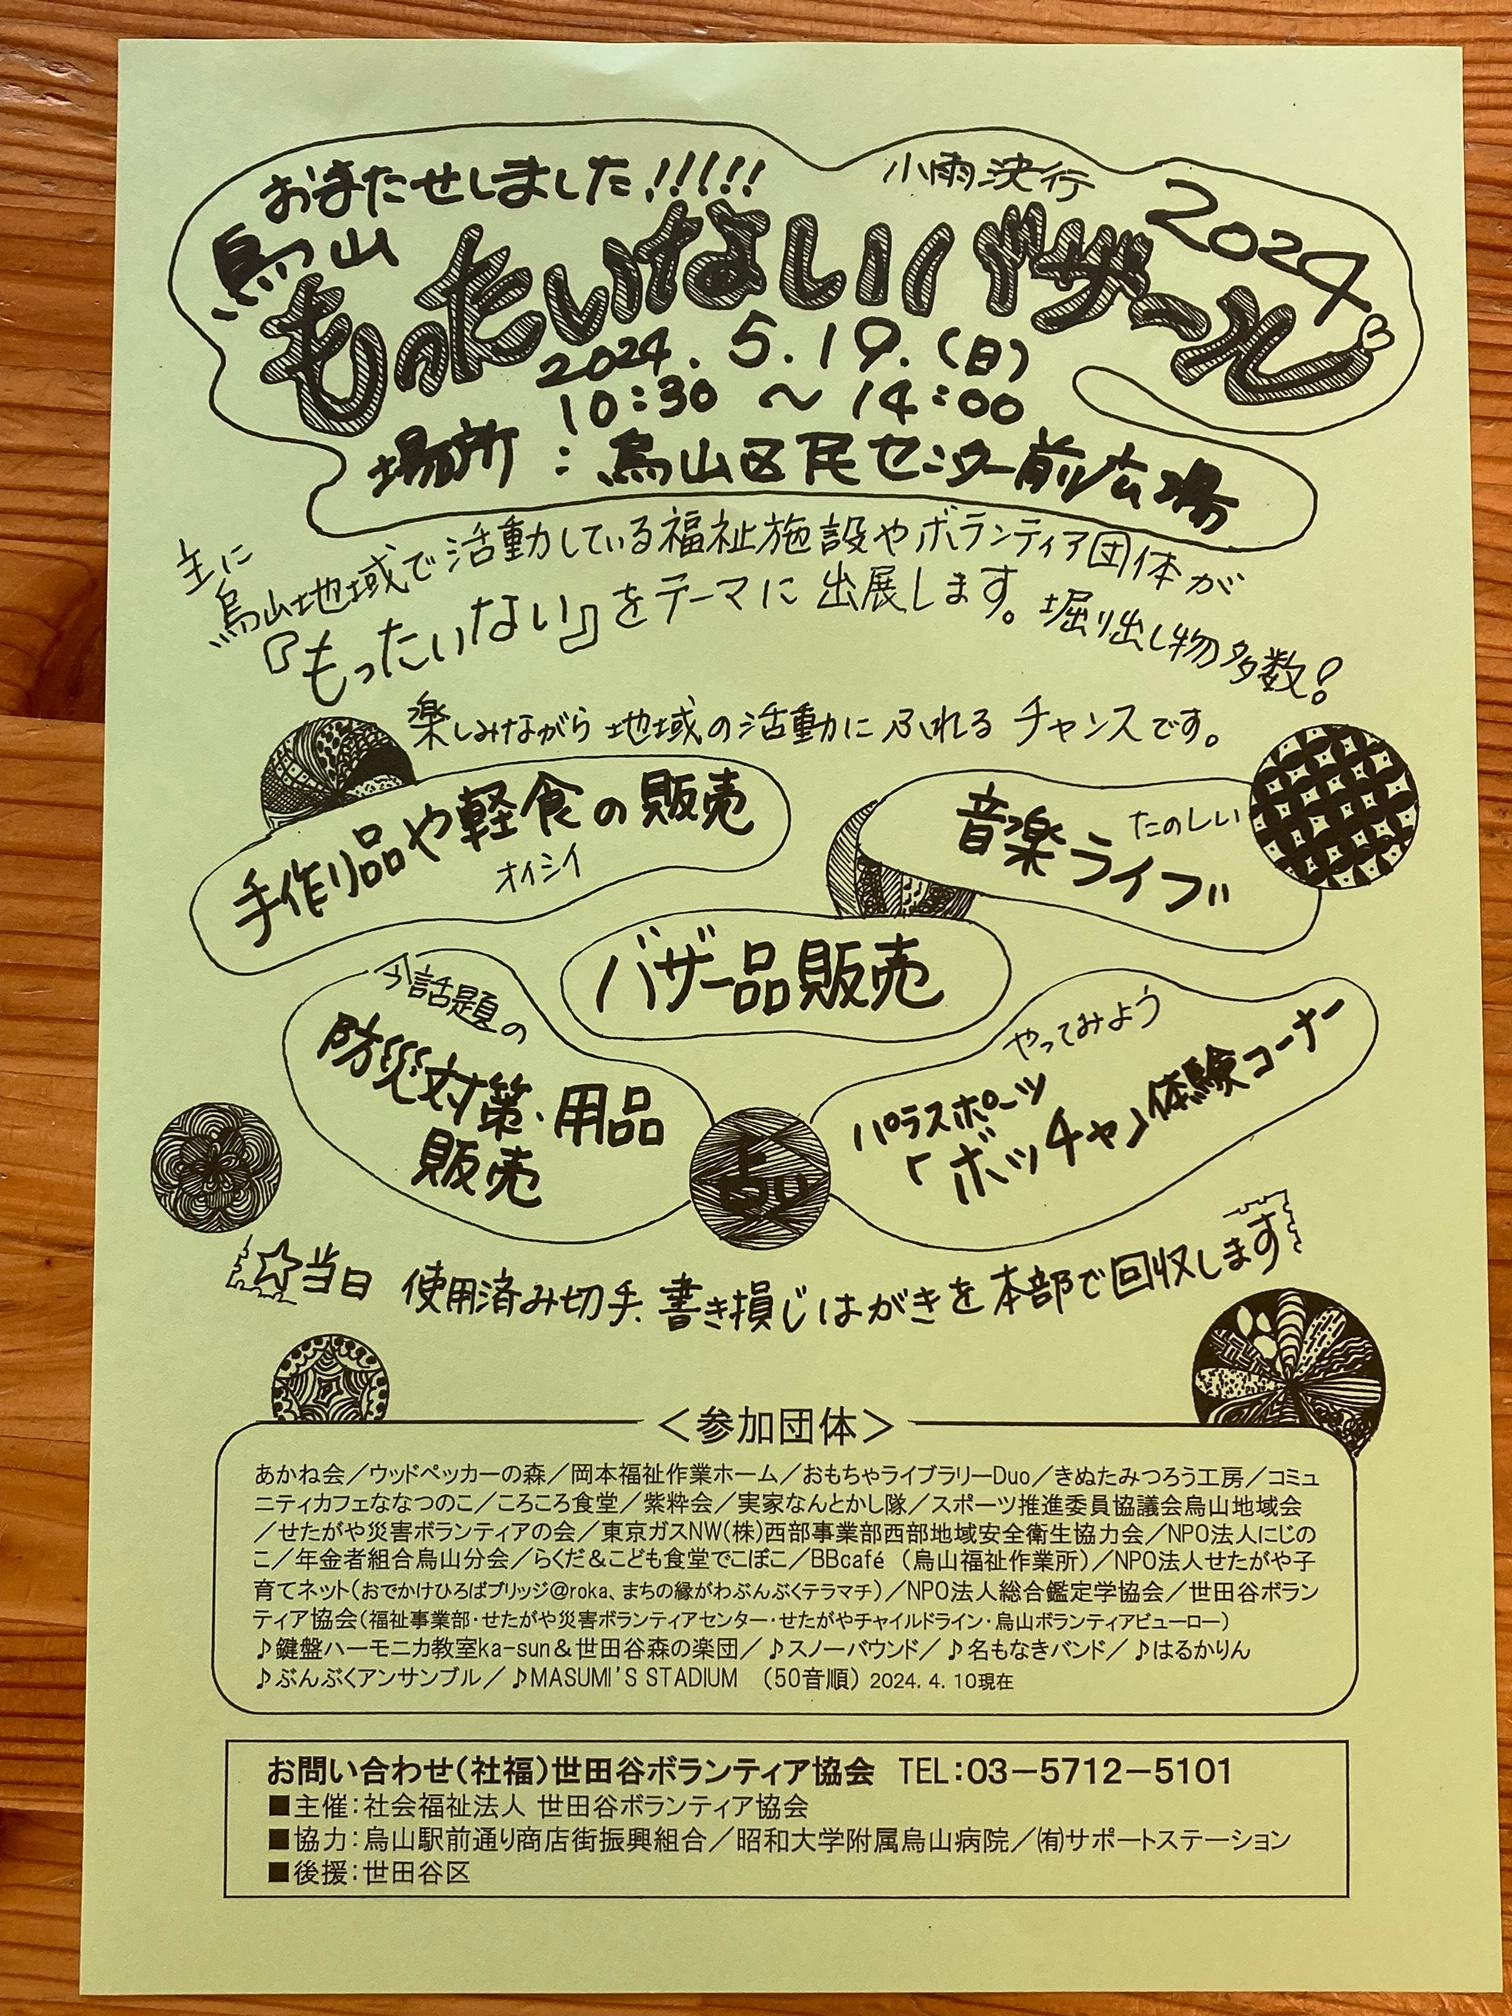 おまたせしました!!!!!
小雨決行
烏山
もったいないバザール
2024
2024.5.19.(日)
10:30 ～ 14:00
場所：烏山区民センター前広場
主に
烏山地域で活動している福祉施設やボランティア団体が
『もったいない』をテーマに出展します。掘り出し物多数！
楽しみながら地域の活動にふれるチャンスです。
手作り品や軽食の販売
オイシイ
たのしい
音楽ライブ
バザー品販売
今話題の
防災対策・用品
販売
占い
やってみよう
パラスポーツ
「ボッチャ」体験コーナー
☆当日 使用済み切手、書き損じはがきを本部で回収します
＜参加団体＞
あかね会／ウッドペッカーの森／岡本福祉作業ホーム／おもちゃライブラリーDuo／きぬたみつろう工房／コミュ
ニティカフェななつのこ／ころころ食堂／紫粋会／実家なんとかし隊／スポーツ推進委員協議会烏山地域会
／せたがや災害ボランティアの会／東京ガスNW(株)西部事業部西部地域安全衛生協力会／NPO法人にじの
こ／年金者組合烏山分会／らくだ＆こども食堂でこぼこ／BBcafé （烏山福祉作業所）／NPO法人せたがや子
育てネット（おでかけひろばブリッジ@roka、まちの縁がわぶんぶくテラマチ）／NPO法人総合鑑定学協会／世田谷ボラン
ティア協会（福祉事業部・せたがや災害ボランティアセンター・せたがやチャイルドライン・烏山ボランティアビューロー）
♪鍵盤ハーモニカ教室ka-sun＆世田谷森の楽団／♪スノーバウンド／♪名もなきバンド／♪はるかりん
♪ぶんぶくアンサンブル／♪MASUMI'S STADIUM （50音順）2024. 4. 10現在
お問い合わせ（社福）世田谷ボランティア協会 TEL：03－5712－5101
■主催：社会福祉法人 世田谷ボランティア協会
■協力：烏山駅前通り商店街振興組合／昭和大学附属烏山病院／㈲サポートステーション
■後援：世田谷区